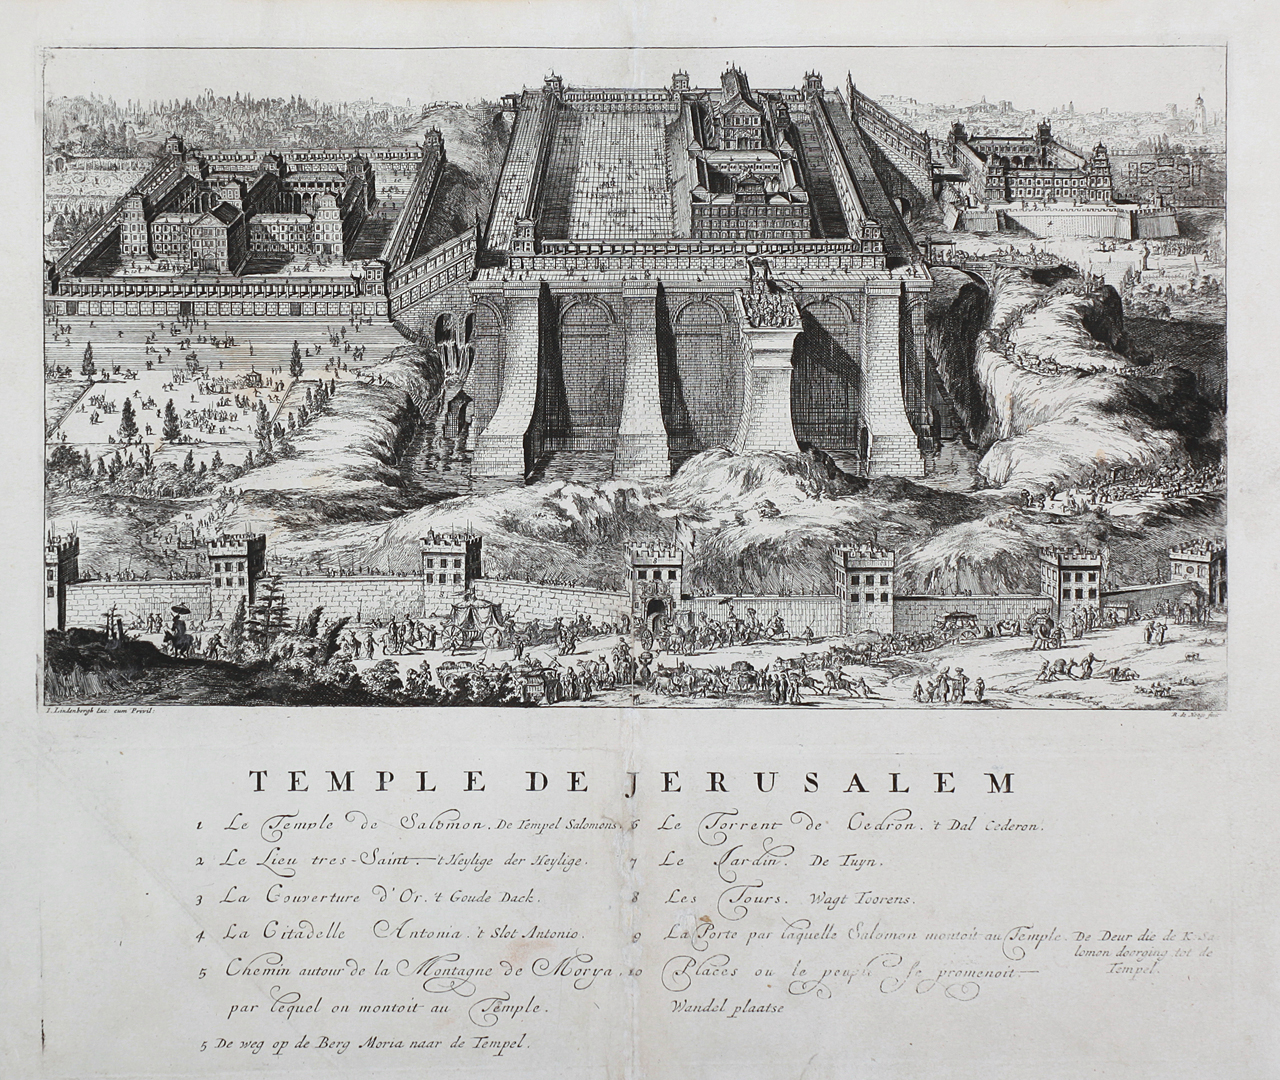 I. Lindenbergh Exc: cum Privil:
R. de Hooge fecit
TEMPLE DE JERUSALEM
1 Le Temple de Salomon. De Tempel Salomons.
2 Le Lieu tres-Saint. 't Heylige der Heylige.
3 La Couverture d'Or. 't Goude Dack.
4 La Citadelle Antonia. 't Slot Antonio.
5 Chemin autour de la Montagne de Morya.
par lequel on montoit au Temple.
5 De weg op de Berg Moria naar de Tempel.
6 Le Torrent de Cedron. 't Dal Cederon.
7 Le Jardin. De Tuyn.
8 Les Tours. Wagt Toorens.
9 La Porte par laquelle Salomon montoit au Temple. De Deur die de K: Sa-
lomon doorging tot de
Tempel.
10 Places ou le peuple se promenoit.
Wandel plaatse